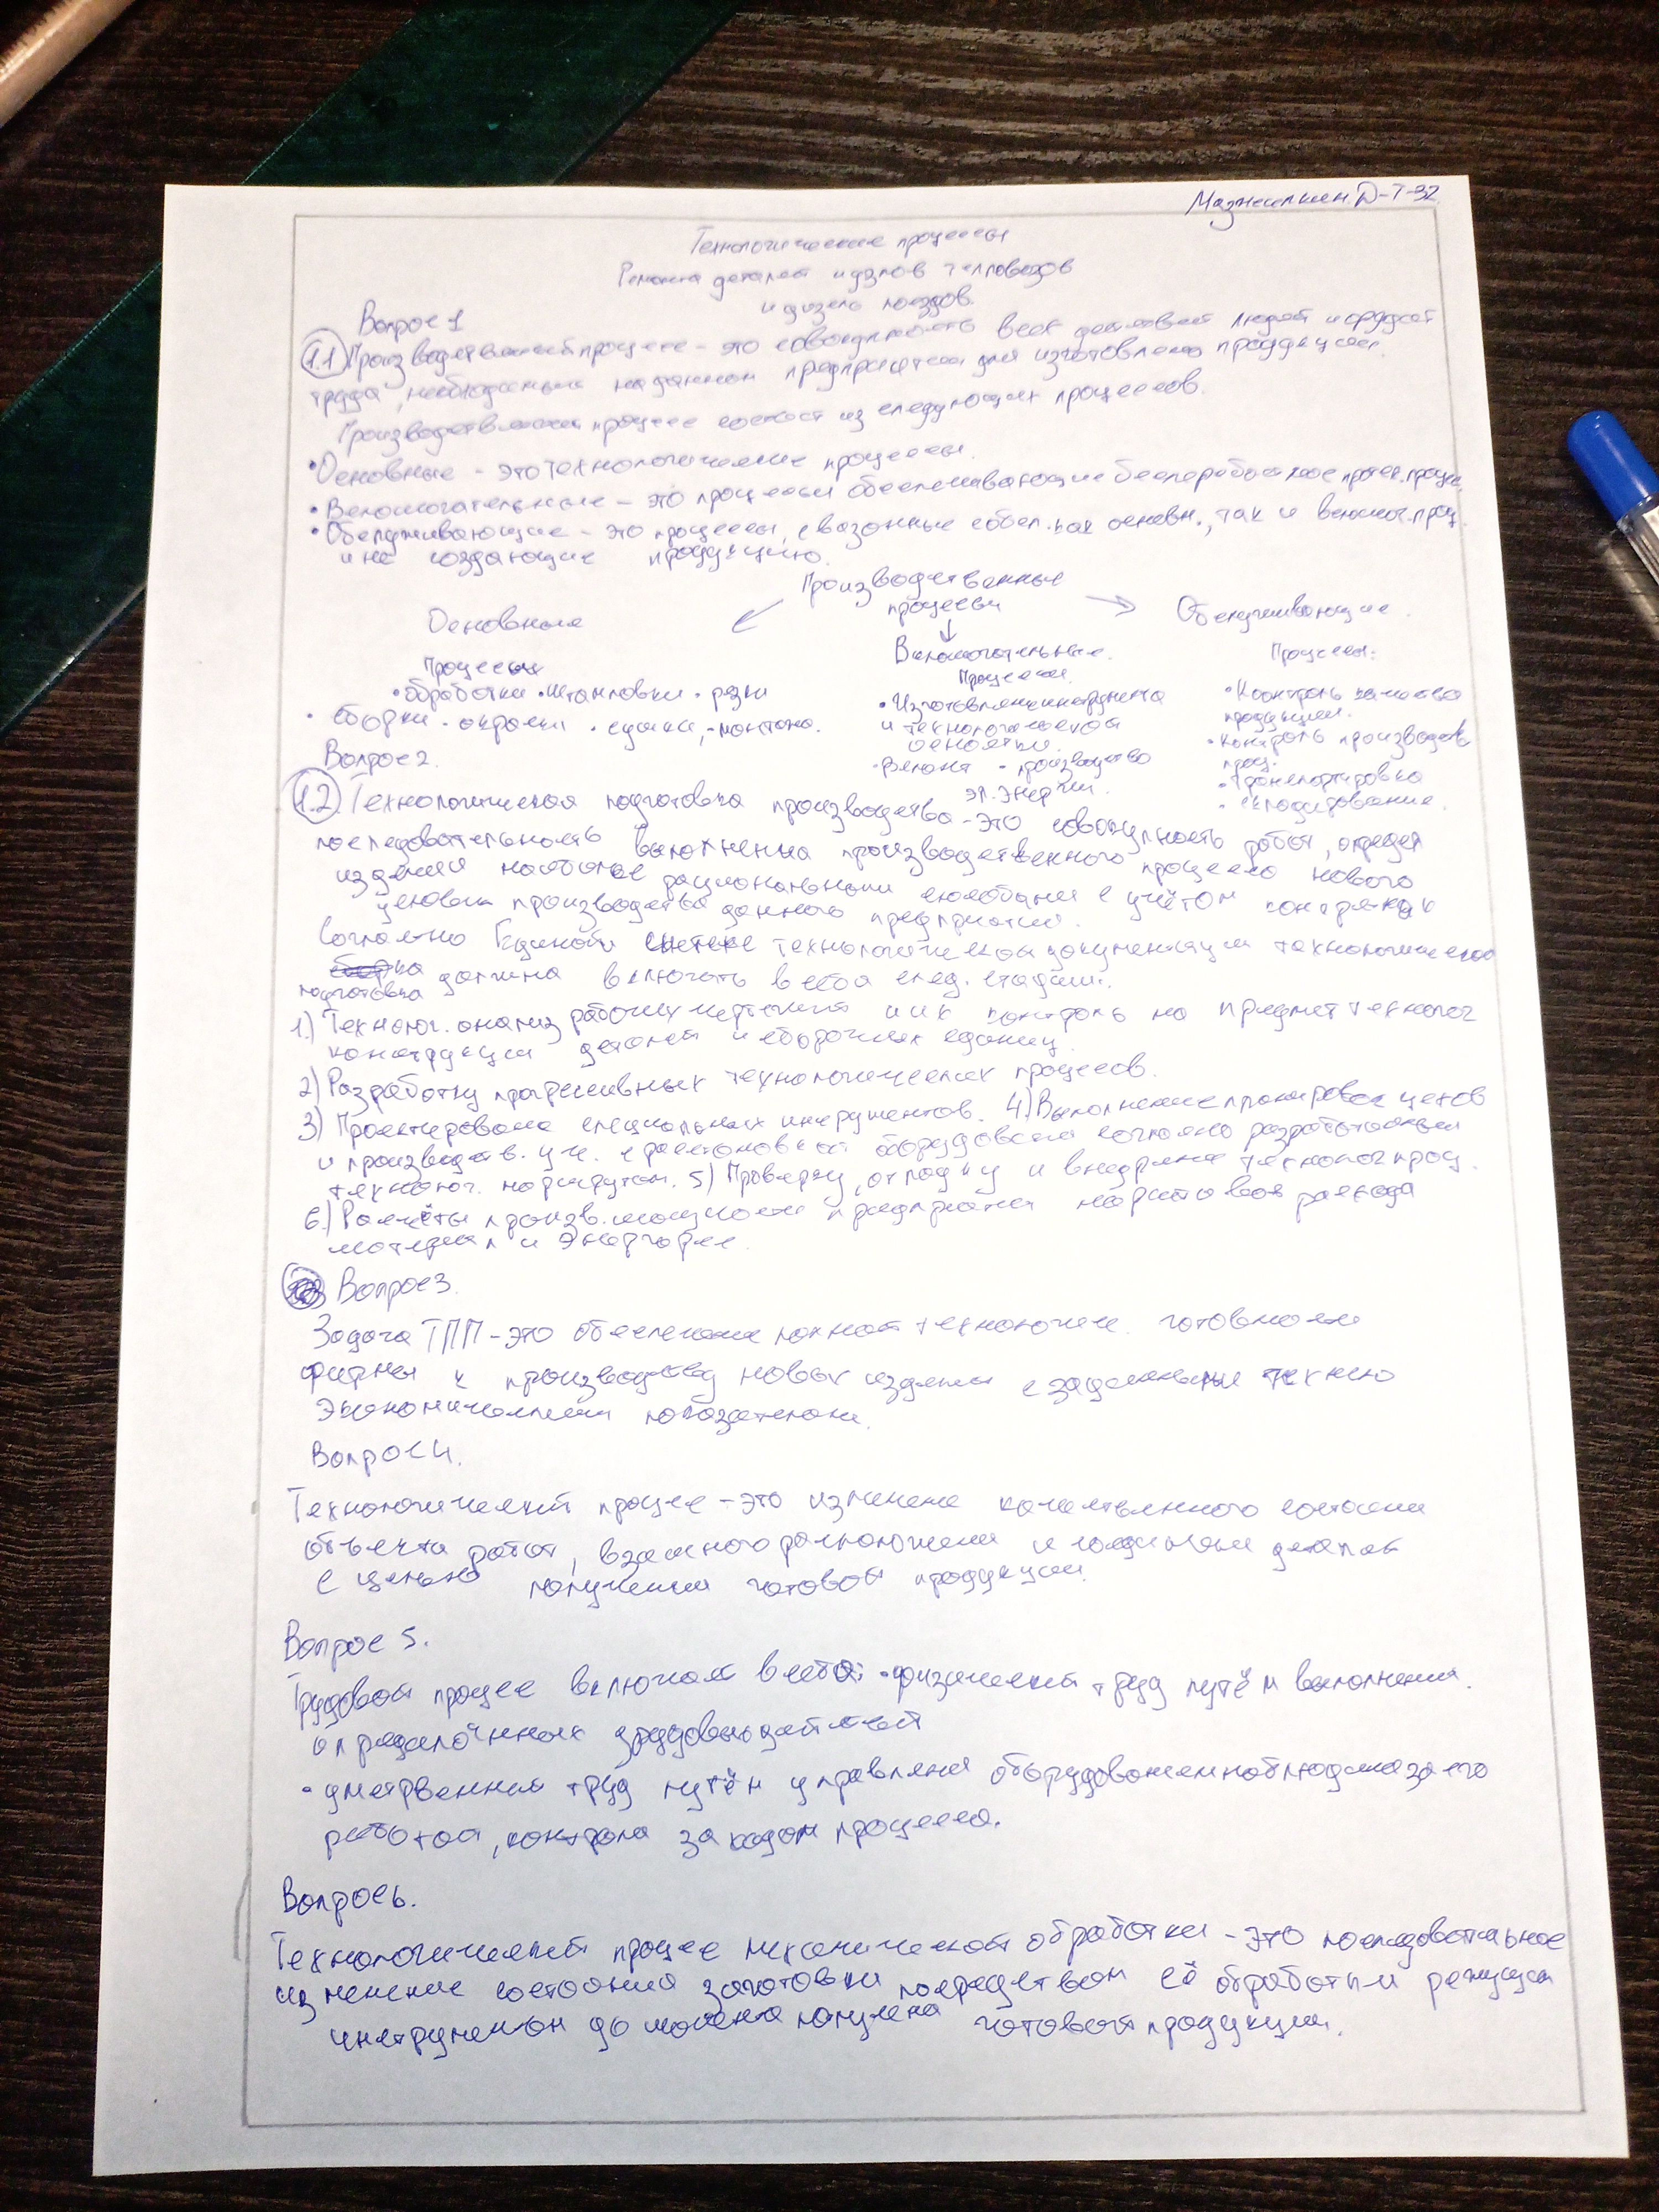 Мажилкин.Д-Т-32
Технологические процессы
Ремонта деталей и узлов тепловозов
и дизель поездов.
Вопрос 1
1.1 Производственный процесс - это совокупность всех действий людей и орудий
труда, необходимых на данном предприятии для изготовления продукции.
Производственный процесс состоит из следующих процессов.
• Основные - это технологические процессы.
• Вспомогательные - это процессы обеспечивающие бесперебойное протек. процес.
• Обслуживающие - это процессы, связанные с обсл. как основн., так и вспомог. проц.
и не создающие продукцию.
Производственные
процессы
Основные
Процессы
• обработки • штамповки • резки
• сборки • окраски • сушки, • монтажа.
Вспомогательные.
Процессы.
• Изготовление инструмента
и технологической
оснастки.
• Ремонт • производство
эл. энергии.
Обслуживающие.
Процессы:
• Контроль качества
продукции.
• контроль производств
проц.
• транспортировка
• складирование.
Вопрос 2.
1.2 Технологическая подготовка производства - это совокупность работ, определ
последовательность выполнения производственного процесса нового
изделия наиболее рациональными способами с учётом конкретных
условий производства данного предприятия.
Согласно Единой системе технологической документации технологическая
подготовка должна включать в себя след. стадии:
1.) Технолог. анализ рабочих чертежей и их контроль на предмет технолог
конструкции деталей и сборочных единиц.
2) Разработку прогрессивных технологических процессов.
3) Проектирование специальных инструментов. 4) Выполнение планировок цехов
и производств. уч. с расстановкой оборудования согласно разработанным
технолог. маршрутам. 5) Проверку, отладку и внедрение технолог проц.
6.) Расчёты произв. мощности предприятия нормативов расхода
материал и энергоре.
Вопрос 3.
Задача ТПП - это обеспечение полной технологиче. готовности
фирмы к производству новых изделий с заданными технико
экономическими показателями.
Вопрос 4.
Технологический процесс - это изменение качественного состояния
объекта работ, взаимного расположения и соединения деталей
с целью получения готовой продукции.
Вопрос 5.
Трудовой процесс включает в себя: • физический труд путём выполнения
определённых трудовых действий
• умственный труд путём управления оборудованием наблюдения за его
работой, контроля за ходом процесса.
Вопрос 6.
Технологический процесс механической обработки - это последовательное
изменение состояния заготовки посредством её обработки режущим
инструментом до момента получения готовой продукции.